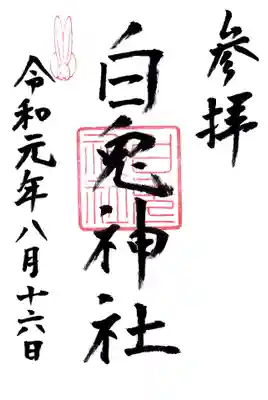 参拝
白兔神社
令和元年八月十六日